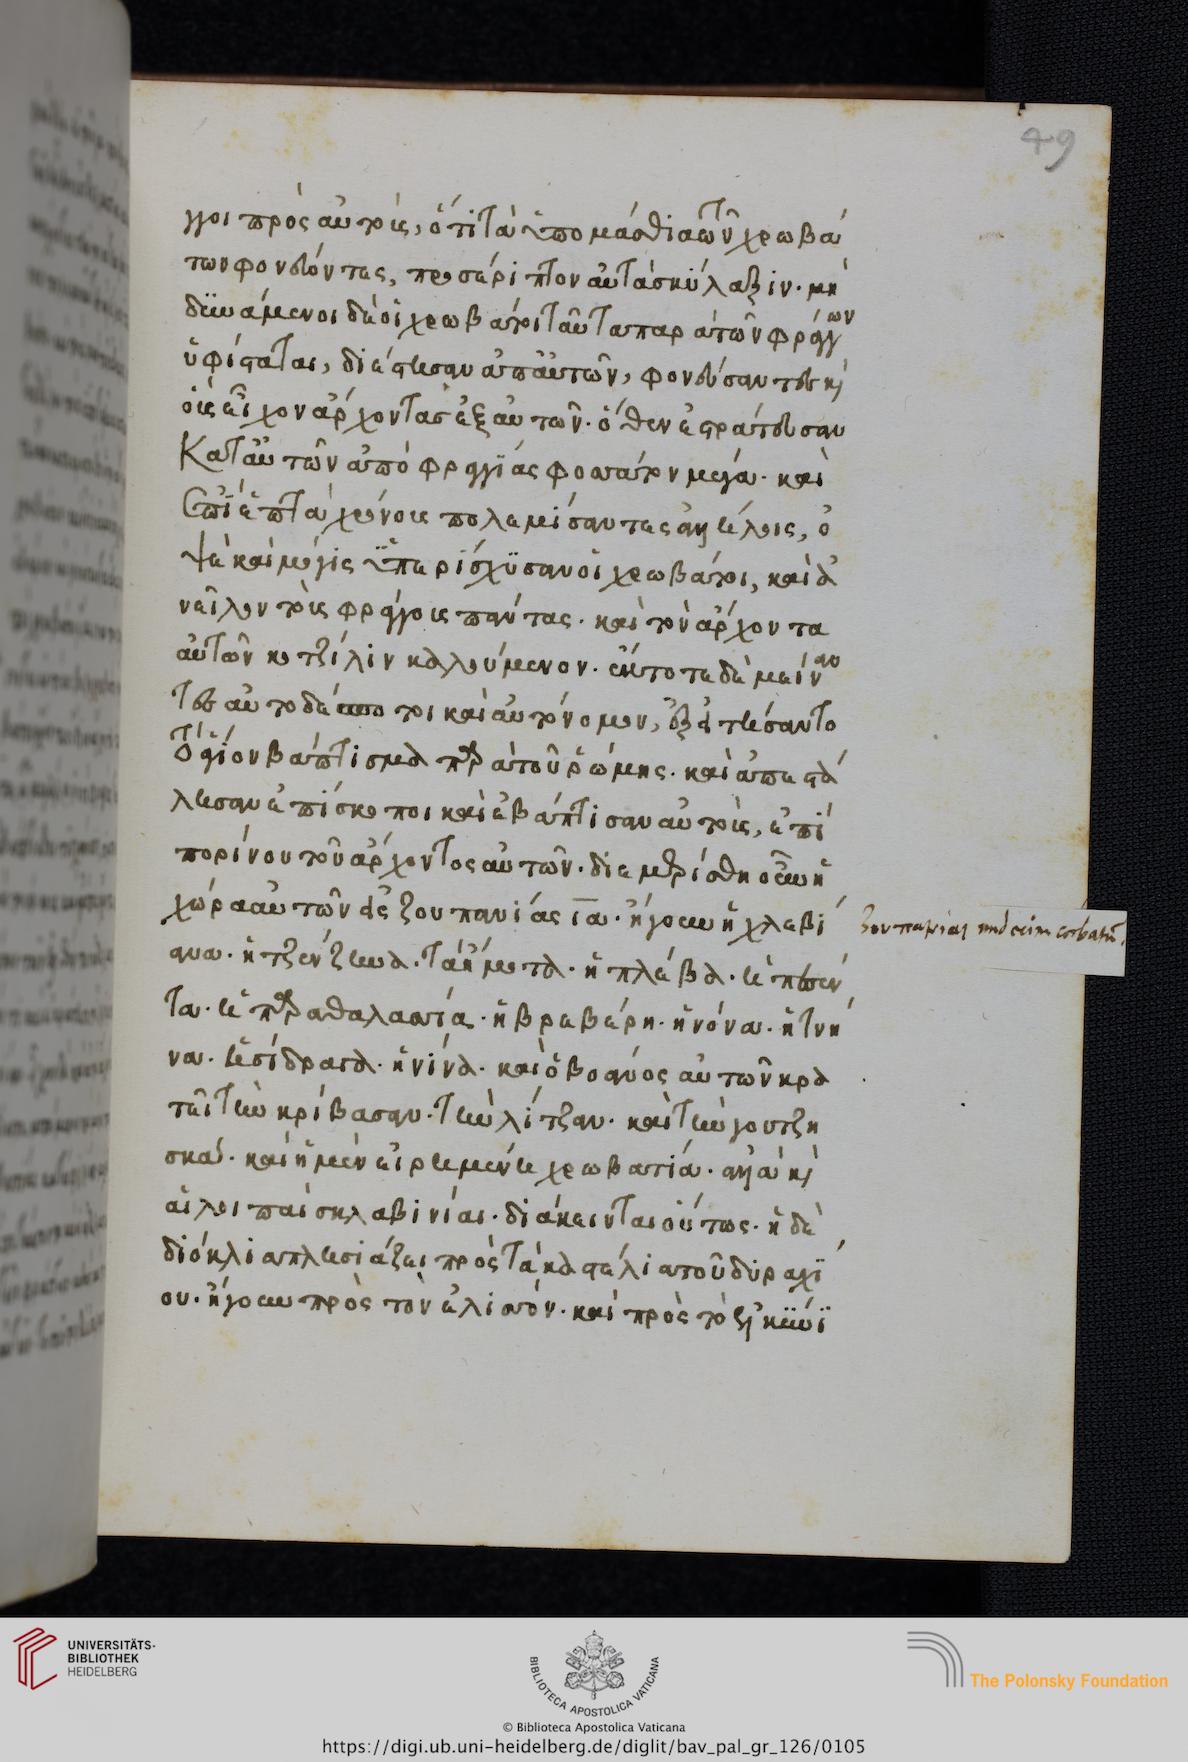 49
γγοι πρὸς αὐτοὺς, ὅτι τὰ ὑπομάσθια τῶν χρωβά
των φονεύοντες, προσέριπτον αὐτὰ σκύλαξιν. μὴ
δυνάμενοι δὲ οἱ χρωβάτοι ταῦτα παρὰ τῶν φράγγων
ὑφίστασθαι, διέστησαν ἀπ' αὐτῶν, φονεύσαντες καὶ
οὓς εἶχον ἄρχοντας ἐξ αὐτῶν. ὅθεν ἐστράτευσαν
κατ' αὐτῶν ἀπὸ φραγγίας φοσσάτον μέγα. καὶ
ἐπὶ ἑπτὰ χρόνοις πολεμίσαντες ἀλλήλοις, ὀ
ψὲ καὶ μόγις ὑπερίσχυσαν οἱ χρωβάτοι, καὶ ἀ
νεῖλον τοὺς φράγγους πάντας. καὶ τὸν ἄρχοντα
αὐτῶν κοτζίλιν καλούμενον. ἔκτοτε δὲ μείναν
τες αὐτοδέσποτοι καὶ αὐτόνομοι, ἐξῃτήσαντο
τὸ ἅγιον βάπτισμα παρὰ τοῦ ῥώμης. καὶ ἀπεστά
λησαν ἐπίσκοποι καὶ ἐβάπτισαν αὐτοὺς, ἐπὶ
πορίνου τοῦ ἄρχοντος αὐτῶν. διεμερίσθη οὖν ἡ
χώρα αὐτῶν εἰς ζουπανίας ια. ἤγουν ἡ χλεβί
ανα. ἡ τζένζηνα. τὰ ἤμοτα. ἡ πλέβα. ἡ πεσέν
τα. ἡ παραθαλασσία. ἡ βρεβέρη. ἡ νόνα. ἡ τνή
να. ἡ σίδραγα. ἡ νίνα. καὶ ὁ βοάνος αὐτῶν κρα
τεῖ τὴν κρίβασαν. τὴν λίτζαν. καὶ τὴν γουτζη
σκά. καὶ ἡ μὲν εἰρημένη χρωβατία. ἀλλὰ καὶ
αἱ λοιπαὶ σκλαβινίαι. διάκεινται οὕτως. ἡ δὲ
διόκλια πλησιάζει πρὸς τὰ καστέλια τοῦ δυραχί
ου. ἤγουν πρὸς τὸν ἐλισσόν. καὶ πρὸς τὸ ἑλκύνι
ζουπανίας undecim
UNIVERSITÄTS-
BIBLIOTHEK
HEIDELBERG
BIBLIOTECA APOSTOLICA VATICANA
The Polonsky Foundation
© Biblioteca Apostolica Vaticana
https://digi.ub.uni-heidelberg.de/diglit/bav_pal_gr_126/0105